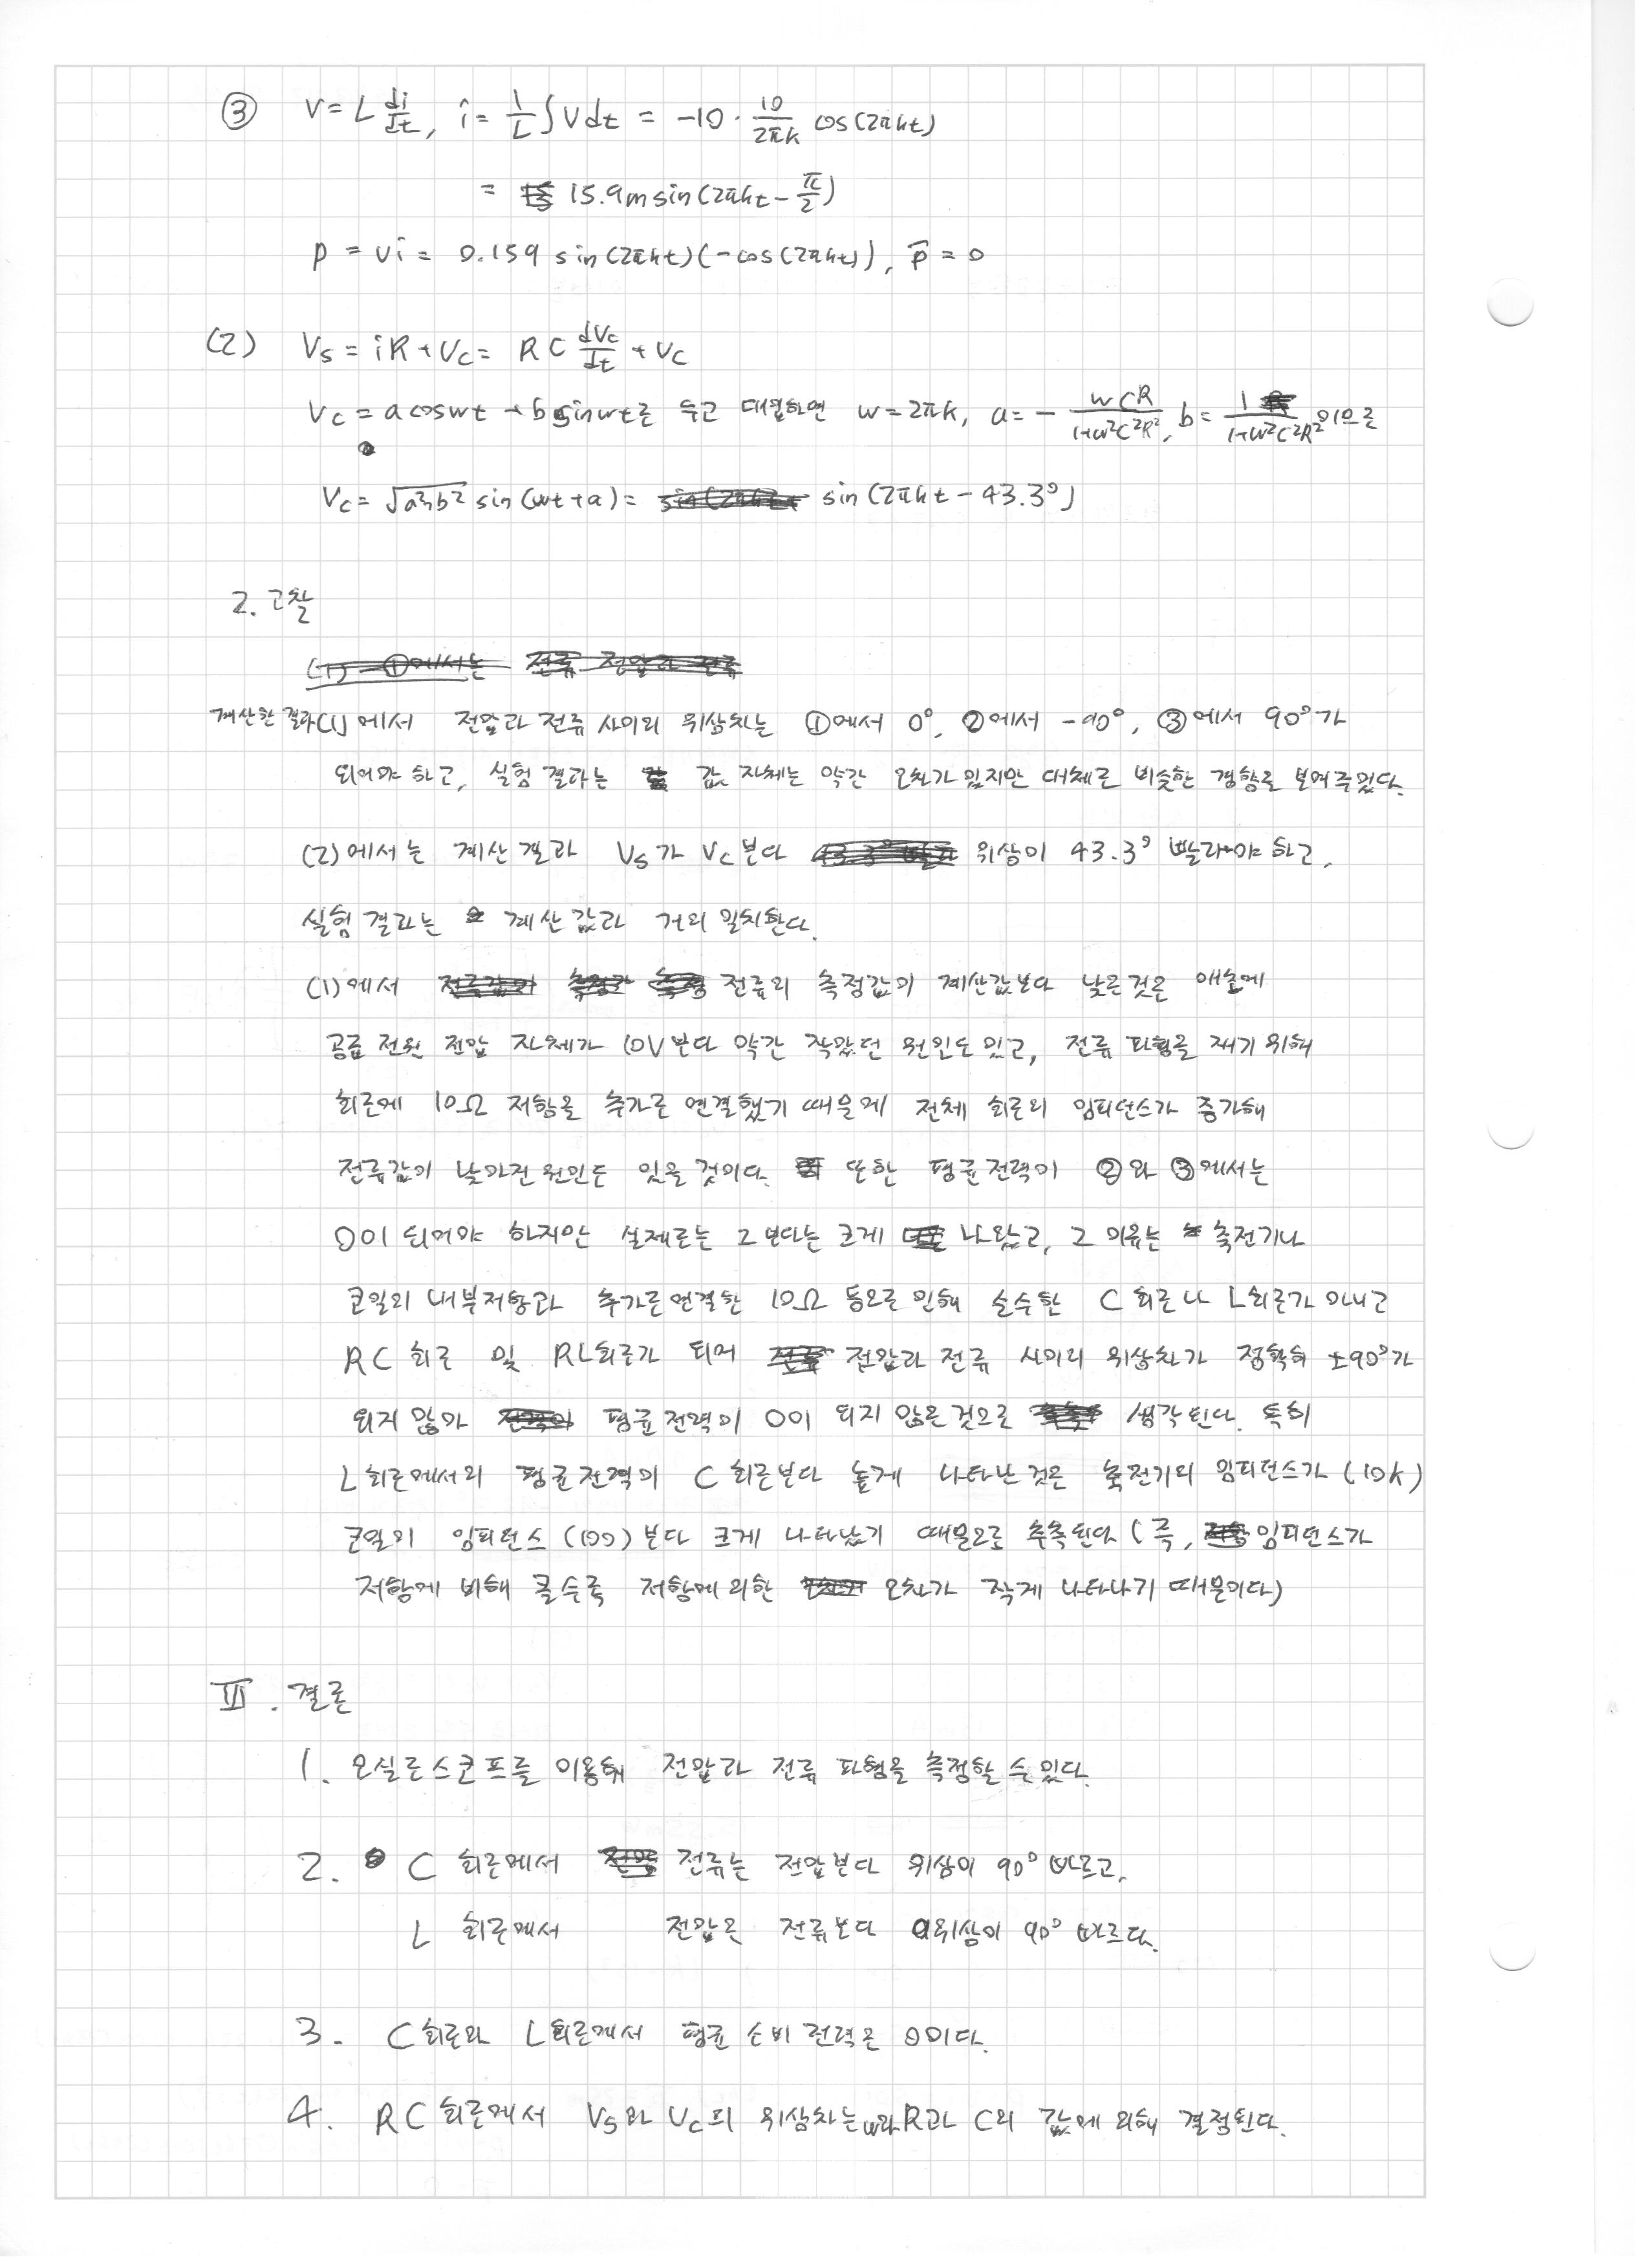 ③ V = L di/dt, i = 1/L ∫Vdt = -10 · 10/2πk cos(2πkt)
= 15.9m sin(2πkt - π/2)
p = vi = 0.159 sin(2πkt)(-cos(2πkt)), p̄ = 0
(2) Vs = iR + Vc = RC dVc/dt + Vc
Vc = a cos wt + b sin wt로 두고 대입하면 w = 2πk, a = - wCR/1+w²C²R², b = 1/1+w²C²R² 이므로
Vc = √a²+b² sin(wt+a) = sin(2πkt - 43.3°)
2. 고찰
계산한 결과 (1)에서 전압과 전류 사이의 위상차는 ①에서 0°, ②에서 -90°, ③에서 90°가
되어야 하고, 실험 결과는 값 자체는 약간 오차가 있지만 대체로 비슷한 경향을 보여주었다.
(2)에서는 계산 결과 Vs가 Vc보다 위상이 43.3° 빨라야 하고,
실험 결과는 계산 값과 거의 일치한다.
(1)에서 전류의 측정값이 계산값보다 낮은것은 애초에
공급 전원 전압 자체가 10V보다 약간 작았던 원인도 있고, 전류 파형을 재기 위해
회로에 10Ω 저항을 추가로 연결했기 때문에 전체 회로의 임피던스가 증가해
전류값이 낮아진 원인도 있을 것이다. 또한 평균전력이 ②와 ③에서는
0이 되어야 하지만 실제로는 그보다는 크게 나왔고, 그 이유는 축전기나
코일의 내부저항과 추가로 연결한 10Ω 등으로 인해 순수한 C회로나 L회로가 아니고
RC 회로 및 RL회로가 되어 전압과 전류 사이의 위상차가 정확히 ±90°가
되지 않아 평균전력이 0이 되지 않은 것으로 생각된다. 특히
L회로에서의 평균전력이 C 회로보다 높게 나타난 것은 축전기의 임피던스가 (10k)
코일의 임피던스 (100) 보다 크게 나타났기 때문으로 추측된다 (즉, 임피던스가
저항에 비해 클수록 저항에 의한 오차가 작게 나타나기 때문이다)
III. 결론
1. 오실로스코프를 이용해 전압과 전류 파형을 측정할 수 있다.
2. C 회로에서 전류는 전압보다 위상이 90° 빠르고,
L 회로에서 전압은 전류보다 위상이 90° 빠르다.
3. C회로와 L회로에서 평균 소비 전력은 0이다.
4. RC회로에서 Vs와 Vc의 위상차는 w와 R과 C의 값에 의해 결정된다.